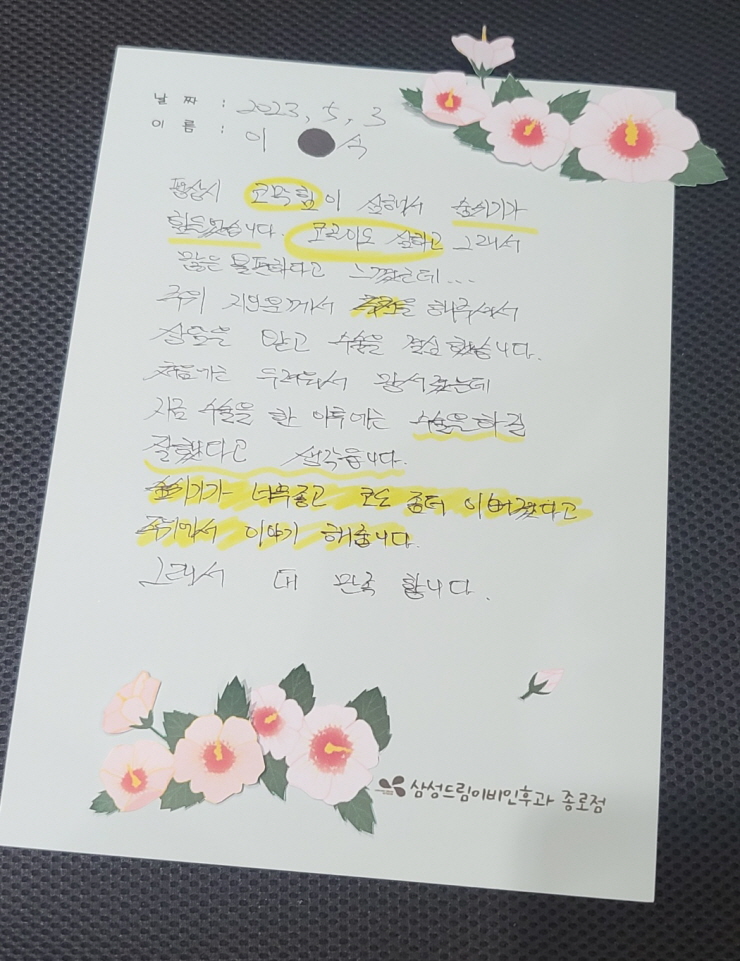 날 짜 : 2023, 5, 3
이 름 : 이 식
평상시 코막힘이 심해서 숨쉬기가
힘들었습니다. 코골이도 심하고 그래서
많은 불편하다고 느꼈는데...
주위 지인분께서 추천을 해주셔서
상담을 받고 수술을 결심 했습니다.
처음에는 두려워서 망서렸는데
지금 수술을 한 이후에는 수술을하길
잘했다고 생각듭니다.
숨쉬기가 너무좋고 코도 좀더 이뻐졌다고
주위에서 이야기 해줍니다.
그래서 더 만족 합니다.
삼성드림이비인후과 종로점